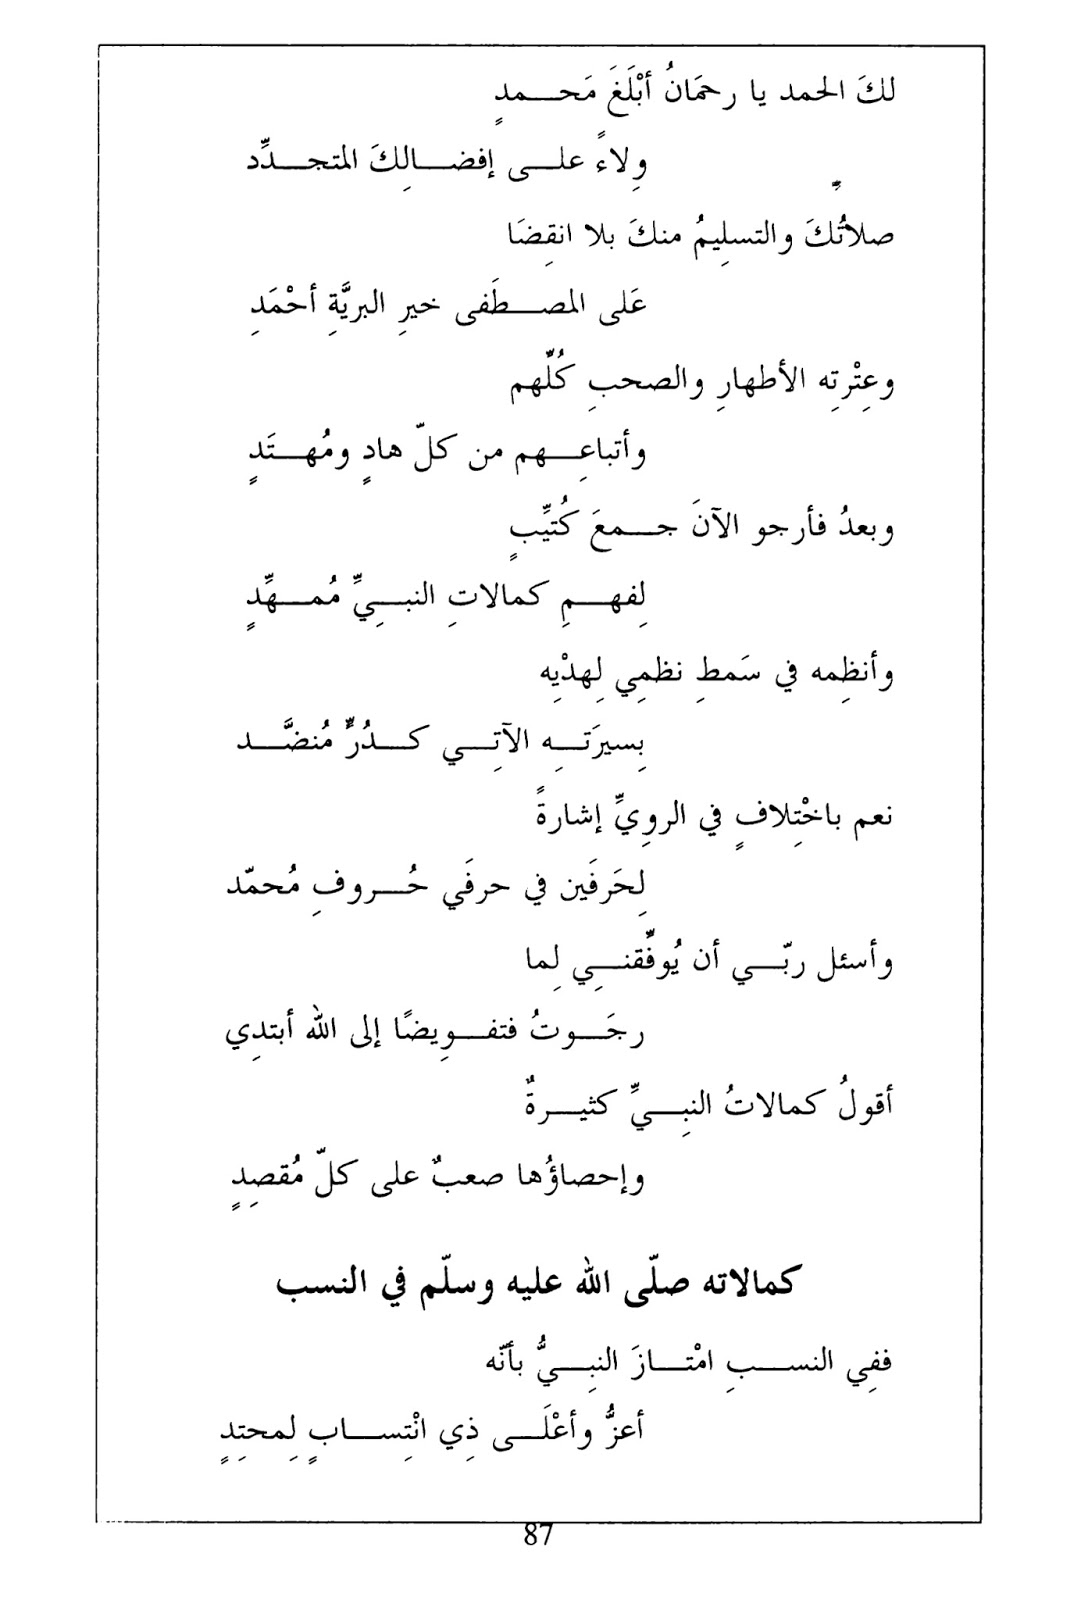 لكَ الحمد يا رحمَانُ أبْلَغَ مَحمدٍ
وِلاءً على إفضالِكَ المتجدِّد
صلاتُكَ والتسلِيمُ منكَ بلا انقِضَا
عَلى المصطَفى خيرِ البريَّةِ أحْمَدِ
وعِتْرتِه الأطهارِ والصحبِ كُلِّهم
وأتباعِهم من كلّ هادٍ ومُهتَدٍ
وبعدُ فأرجو الآنَ جمعَ كُتيِّبٍ
لِفهمِ كمالاتِ النبِيِّ مُمهِّدٍ
وأنظِمه في سَمطِ نظمِي لِهدْيِه
بِسيرَتِه الآتِي كدُرٍّ مُنضَّد
نعم باخْتِلافٍ في الروِيِّ إشارةً
لِحَرفَين في حرفَي حُروفِ مُحمّد
وأسئل ربّي أن يُوفِّقنِي لِما
رجَوتُ فتفوِيضًا إلى الله أبتدِي
أقولُ كمالاتُ النبِيِّ كثيرةٌ
وإحصاؤُها صعبٌ على كلّ مُقصِدٍ
كمالاته صلّى الله عليه وسلّم في النسب
ففِي النسبِ امْتازَ النبِيُّ بأنّه
أعزُّ وأعْلَى ذِي انْتِسابٍ لِمحتِدٍ
87